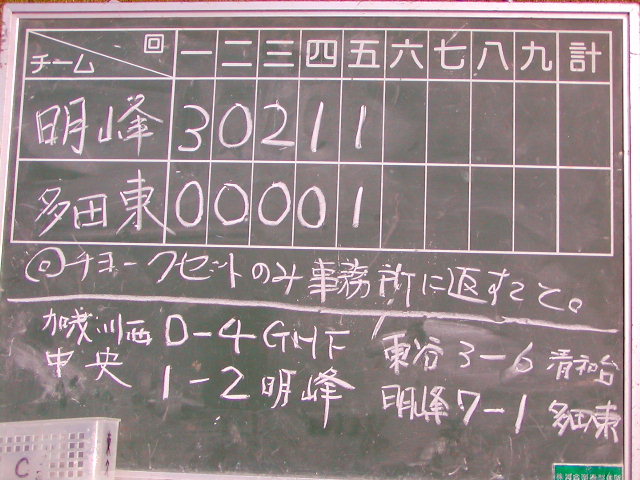 チーム 回 一 二 三 四 五 六 七 八 九 計
明峰 3 0 2 1 1
多田東 0 0 0 0 1
◎チョークセットのみ事務所に返すこと。
加茂川西 0-4 GMF
中央 1-2 明峰
東谷 3-6 清和台
明峰 7-1 多田東
C